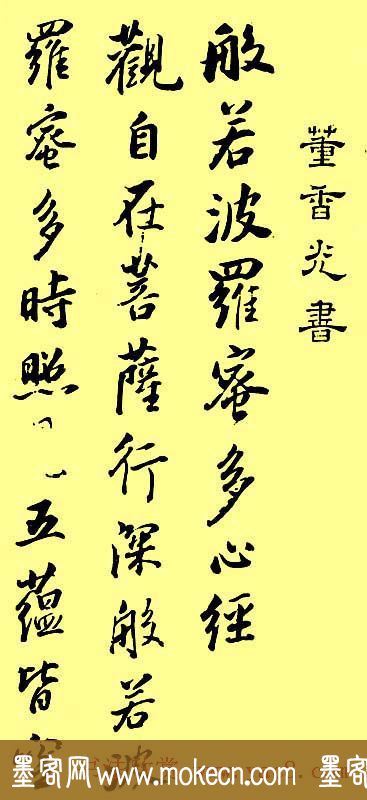 董香光書
般若波羅蜜多心經
觀自在菩薩行深般若波
羅蜜多時照五蘊皆
墨客网 www.mokecn.com 墨客网